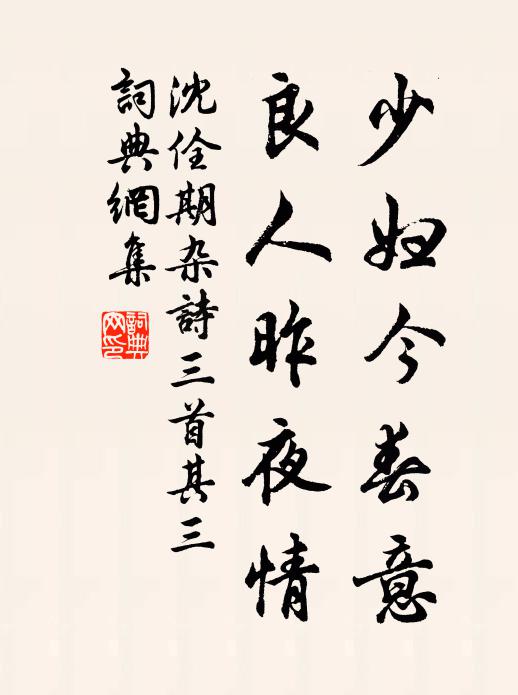 少妇今春意
良人昨夜情
沈佺期杂詩三首其三
詞典網集
詞典網印